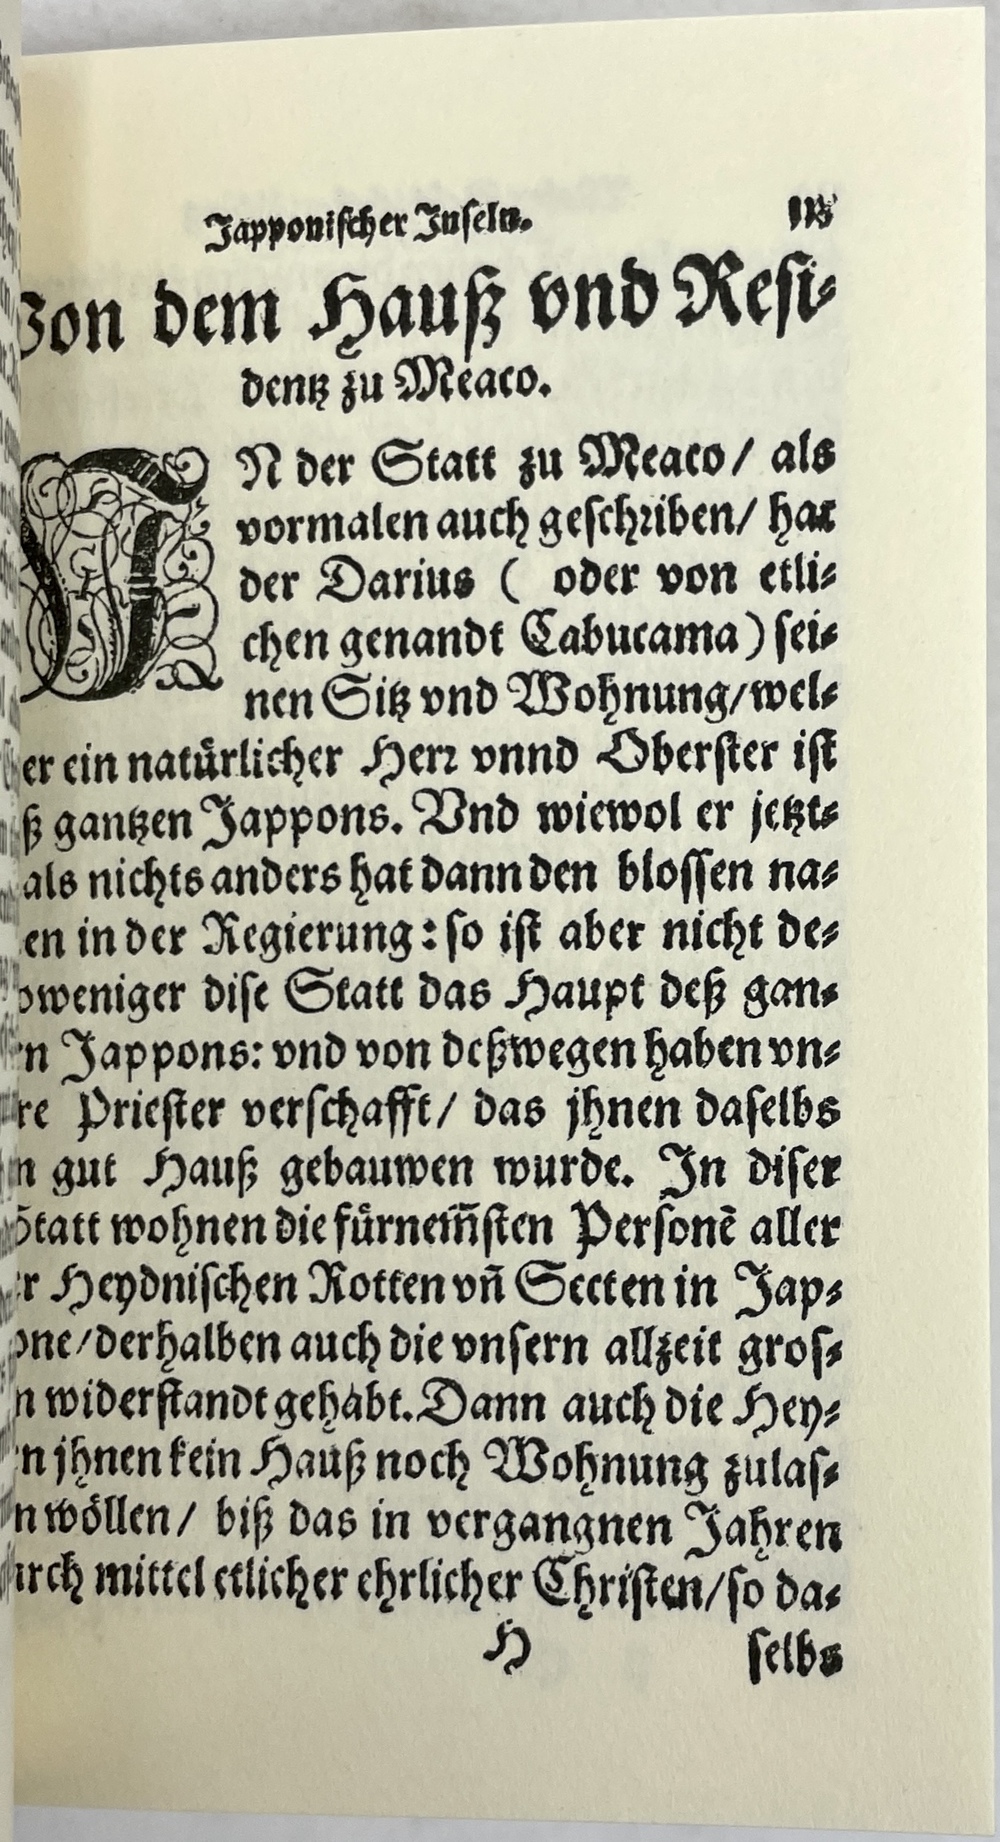 Japponischer Inseln.
Von dem Hauß vnd Resi-
dentz zu Meaco.
IN der Statt zu Meaco/ als
vormalen auch geschriben/ hat
der Darius ( oder von etli-
chen genandt Cabucama) sei-
nen Sitz vnd Wohnung/wel-
er ein natürlicher Herr vnnd Oberster ist
ß gantzen Jappons. Vnd wiewol er jetzt-
als nichts anders hat dann den blossen na-
en in der Regierung: so ist aber nicht de-
oweniger dise Statt das Haupt deß gan-
n Jappons: vnd von deßwegen haben vn-
re Priester verschafft/ das jhnen daselbs
n gut Hauß gebauwen wurde. In diser
Statt wohnen die fürnem̃sten Personē aller
r Heydnischen Rotten vñ Secten in Jap-
one/derhalben auch die vnsern allzeit gros-
n widerstandt gehabt. Dann auch die Hey-
n jhnen kein Hauß noch Wohnung zulas-
n wöllen/ biß das in vergangnen Jahren
urch mittel etlicher ehrlicher Christen/so da-
H selbs